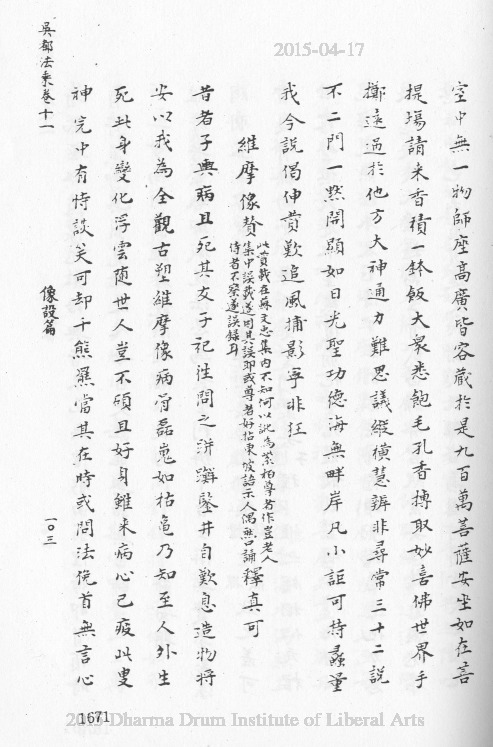 2015-04-17
吳都法乘卷十一
像設篇
一〇三
空中無一物師座高廣皆容藏於是九百萬菩薩安坐如在菩
提場請來香積一鉢飯大衆悉飽毛孔香摶取妙喜佛世界手
擲遠過於他方大神通力難思議縱橫慧辨非尋常三十二說
不二門一默問顯如日光聖功德海無畔岸凡小詎可持蠡量
我今說偈伸賛歎追風捕影寧非狂
維摩像賛
此賛載在蘇文忠集内不知何以訛為紫柏尊者作豈老人
集中誤載遂因其誤即或尊者好拈東坡語示人偶然口誦
侍者不察遂誤錄耳
釋真可
昔者子輿病且死其友子祀往問之跰𨇤鑒井自歎息造物將
安以我為全觀古塑維摩像病骨磊嵬如枯龜乃知至人外生
死此身變化浮雲隨世人豈不碩且好身雖未病心已疲此叟
神完中有恃談笑可却千熊羆當其在時或問法俛首無言心
1671
2015 Dharma Drum Institute of Liberal Arts